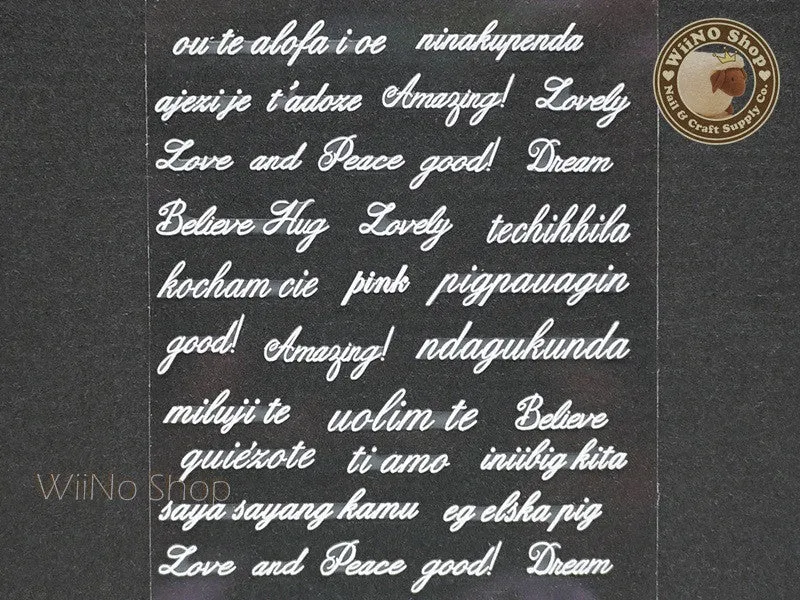 ou te alofa i oe ninakupenda
ajezi je t'adoze Amazing! Lovely
Love and Peace good! Dream
Believe Hug Lovely techihhila
kocham cie pink pigpauagin
good! Amazing! ndagukunda
miluji te uolim te Believe
quiézote ti amo iniibig kita
saya sayang kamu eg elska pig
Love and Peace good! Dream
WiiNO Shop
Nail & Craft Supply Co.
WiiNo Shop